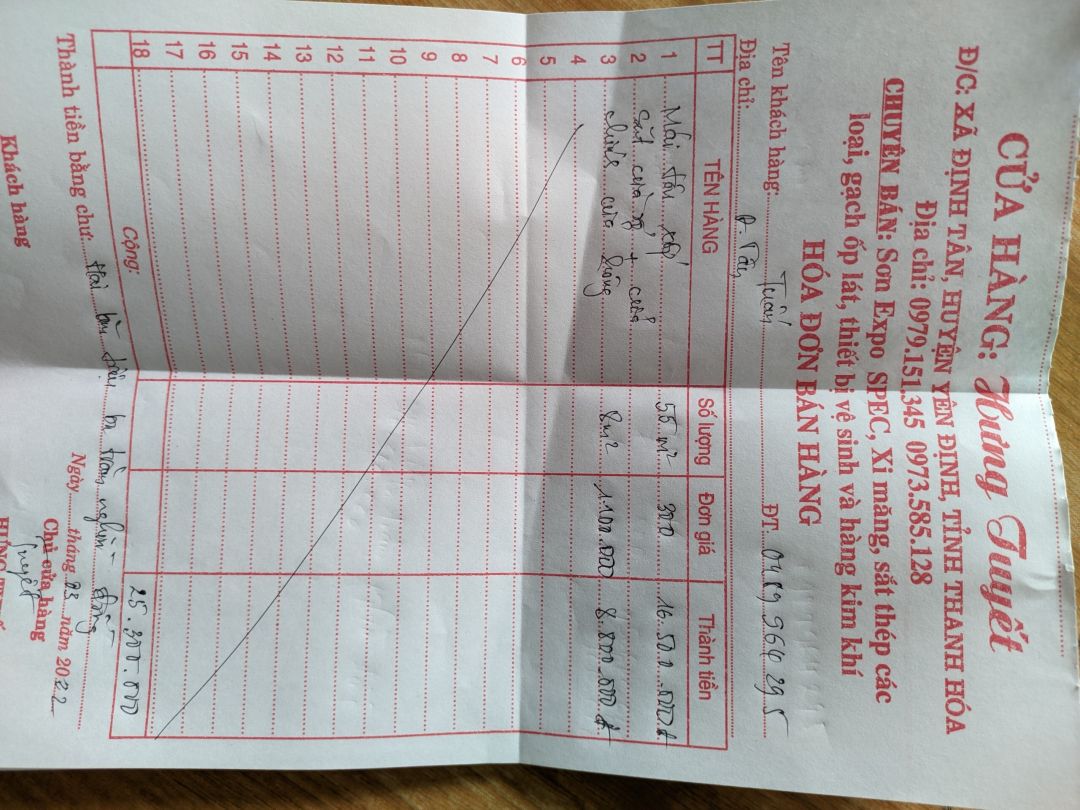 CỬA HÀNG: Hưng Tuyết
Đ/C: XÃ ĐỊNH TÂN, HUYỆN YÊN ĐỊNH, TỈNH THANH HÓA
Địa chỉ: 0979.151.345 0973.585.128
CHUYÊN BÁN: Sơn Expo SPEC, Xi măng, sắt thép các
loại, gạch ốp lát, thiết bị vệ sinh và hàng kim khí
HÓA ĐƠN BÁN HÀNG
Tên khách hàng: Tuấn ĐT.
Địa chỉ:
TT TÊN HÀNG Số lượng Đơn giá Thành tiền
1 Mái tôn xốp 55 m² 300 16.500.000đ
2 + cửa
3 chính cửa 8m² 1.100.000 8.800.000đ
4
5
6
7
8
9
10
11
12
13
14
15
16
17
18 Cộng: 25.300.000
Thành tiền bằng chữ: Hai triệu ba trăm nghìn đồng
Ngày tháng 03 năm 2022
Khách hàng Chủ cửa hàng
Tuyết